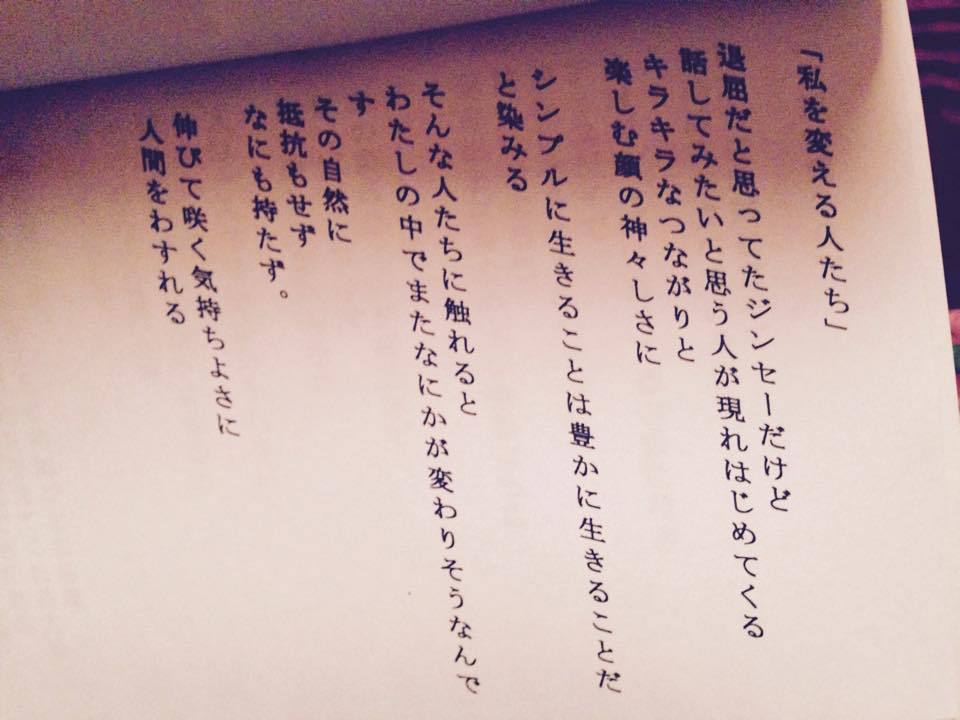 「私を変える人たち」
退屈だと思ってたジンセーだけど
話してみたいと思う人が現れはじめてくる
キラキラなつながりと
楽しむ顔の神々しさに
シンプルに生きることは豊かに生きることだ
と染みる
そんな人たちに触れると
わたしの中でまたなにかが変わりそうなんで
す
その自然に
抵抗もせず
なにも持たず。
伸びて咲く気持ちよさに
人間をわすれる